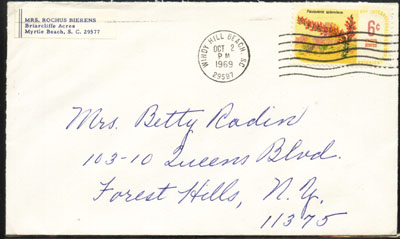 MRS. ROCHUS BIERENS
Briarcliffe Acres
Myrtle Beach, S. C. 29577
WINDY HILL BEACH, SC
OCT 2
PM
1969
29587
6¢
Mrs. Betty Radin
103-10 Queens Blvd.
Forest Hills, N.Y.
11375